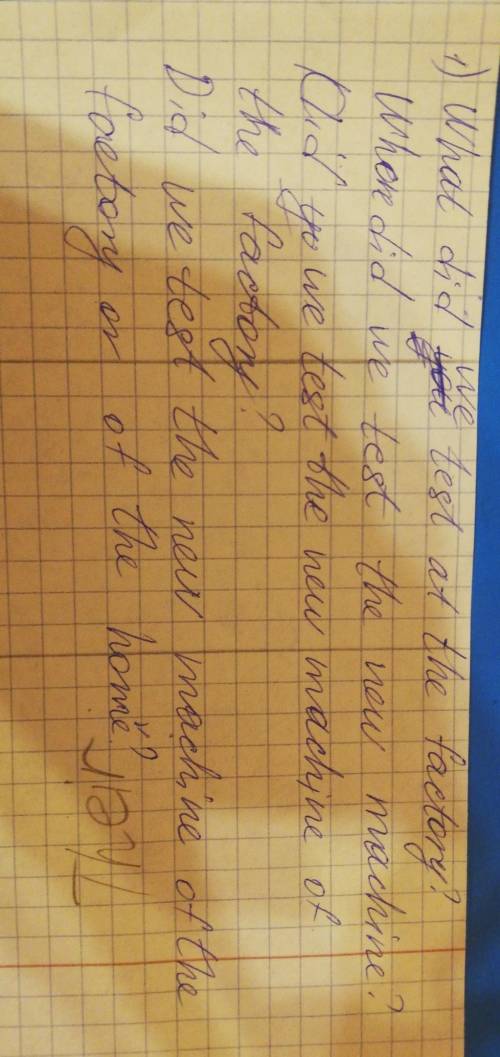 1) What did we test at the factory?
When did we test the new machine?
Did yo we test the new machine of
the factory?
Did we test the new machine of the
factory or of the home?